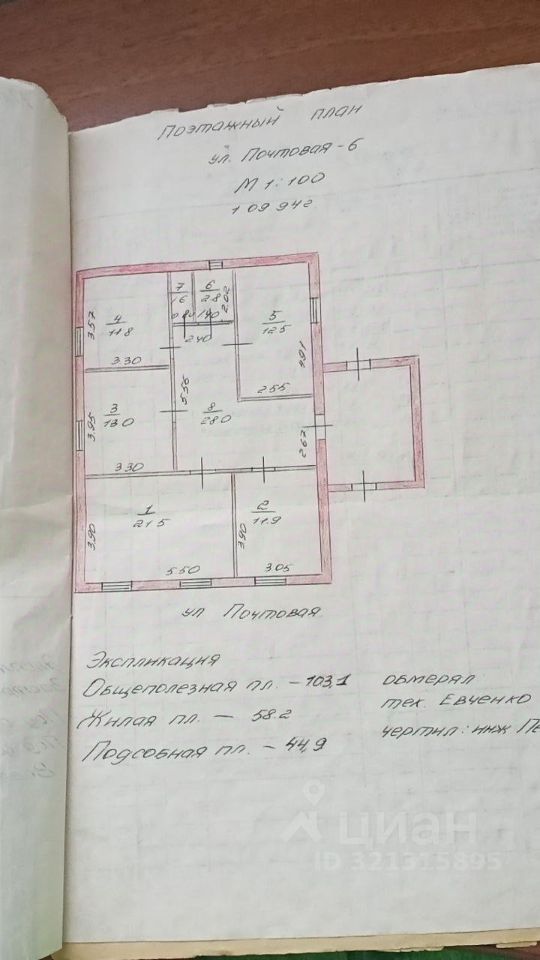 Поэтажный план
ул. Почтовая-6
М 1:100
10994г.
4
11.8
3.57
3.30
7
6
2.8
2.02
2.40
5
12.5
2.55
3
13.0
3.95
3.30
5.56
8
28.0
2.67
1
21.5
3.90
5.50
2
11.9
3.90
3.05
ул Почтовая
Экспликация
Общеполезная пл. – 103,1
Жилая пл. – 58.2
Подсобная пл. – 44,9
обмерял
тех. Евченко
чертил: инж
циан
ID 321315895